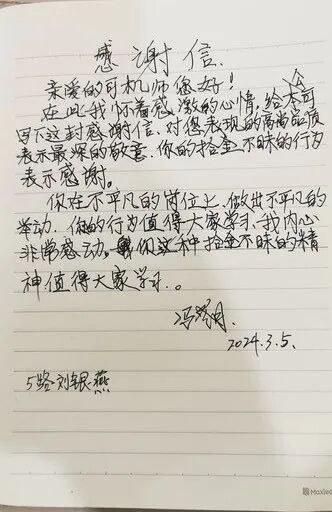 感谢信
亲爱的司机师您好!
在此我怀着感激的心情,给您
写下这封感谢信。对您表现的高尚品质
表示最深的敬意。你的拾金不昧的行为
表示感谢。
你在不平凡的岗位上,做出不平凡的
举动。你的行为值得大家学习,我内心
非常感动。你这种拾金不昧的精
神值得大家学习。。
2024.3.5.
5路刘银燕